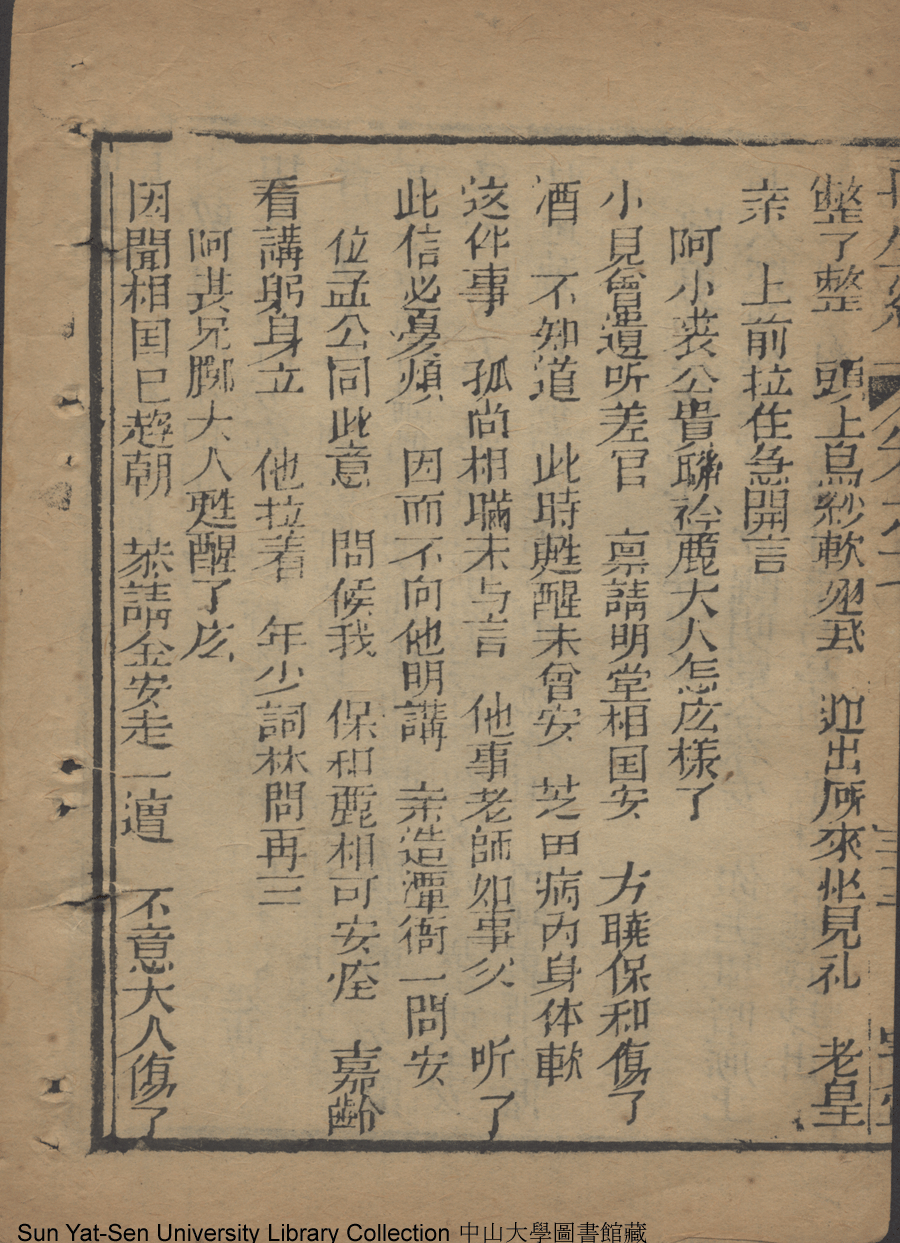 再生緣
整了整　頭上烏紗軟翅飛　迎出所來忙見礼　老皇
亲　上前拉住急開言
阿小裘公貴聯衿鹿大人怎庅樣了
小見曾遣听差官　禀請明堂相国安　方曉保和傷了
酒　不知道　此時甦醒未曾安　芝田病内身体軟
这件事　孤尚相瞞未与言　他事老師如事父　听了
此信必憂煩　因而不向他明講　亲造潭衙一問安
位孟公同此意　問候我　保和鹿相可安痊　嘉齡
看講躬身立　他拉着　年少詞林問再三
阿其兄酈大人甦醒了庅
因聞相国已趍朝　恭請金安走一遭　不意大人傷了
Sun Yat-Sen University Library Collection 中山大學圖書館藏